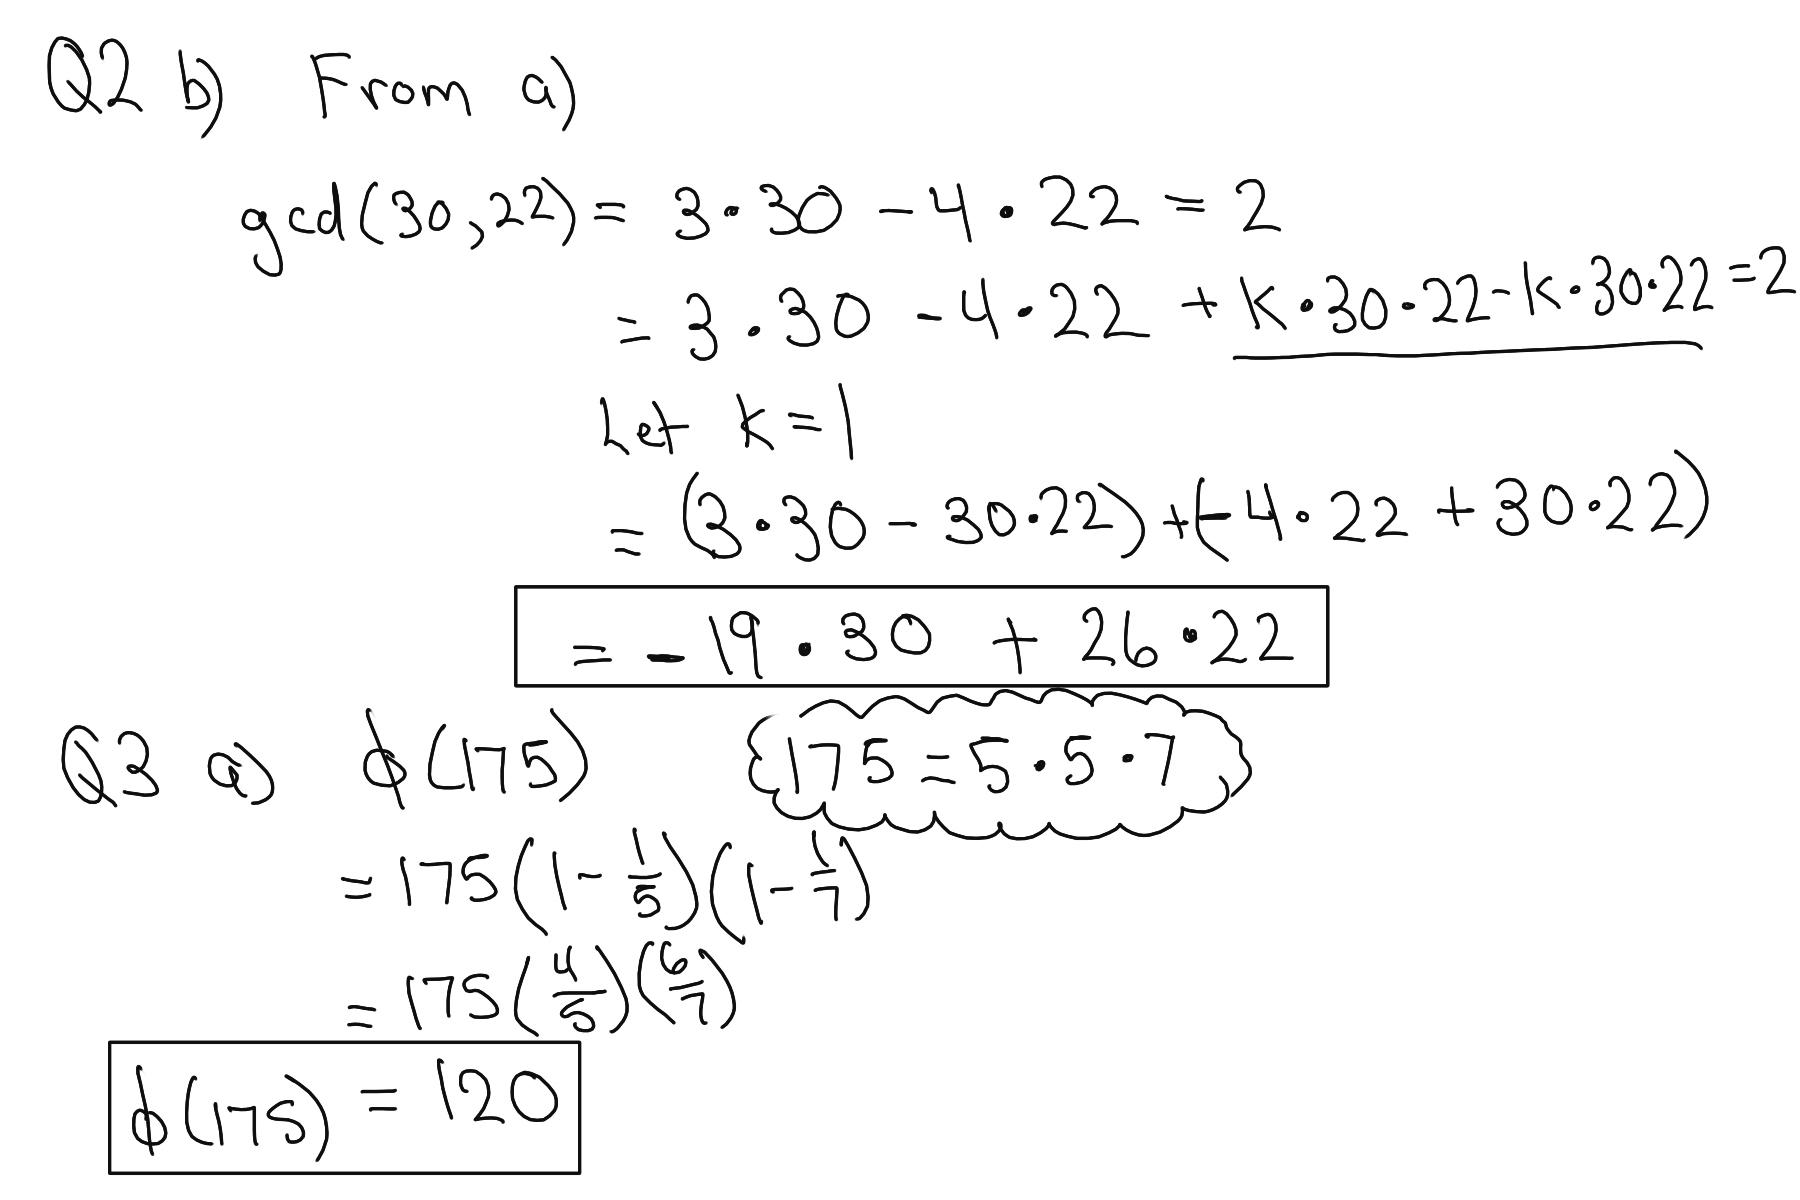 Q2 b) From a)
gcd(30,22) = 3·30 - 4·22 = 2
= 3·30 - 4·22 + k·30·22 - k·30·22 = 2
Let k = 1
= (3·30 - 30·22) + (-4·22 + 30·22)
= -19·30 + 26·22
Q3 a) ϕ(175) 175 = 5·5·7
= 175(1 - 1/5)(1 - 1/7)
= 175(4/5)(6/7)
ϕ(175) = 120